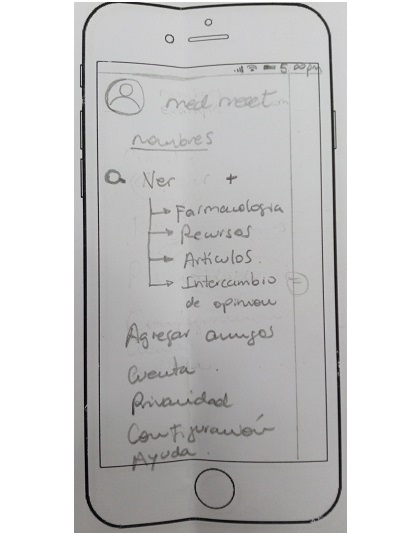 5:00 pm
med meet
nombres
Ver +
Farmacologia
Recursos
Artículos.
Intercambio
de opinion
Agregar amigos
Cuenta.
Privacidad
Configuración
Ayuda.